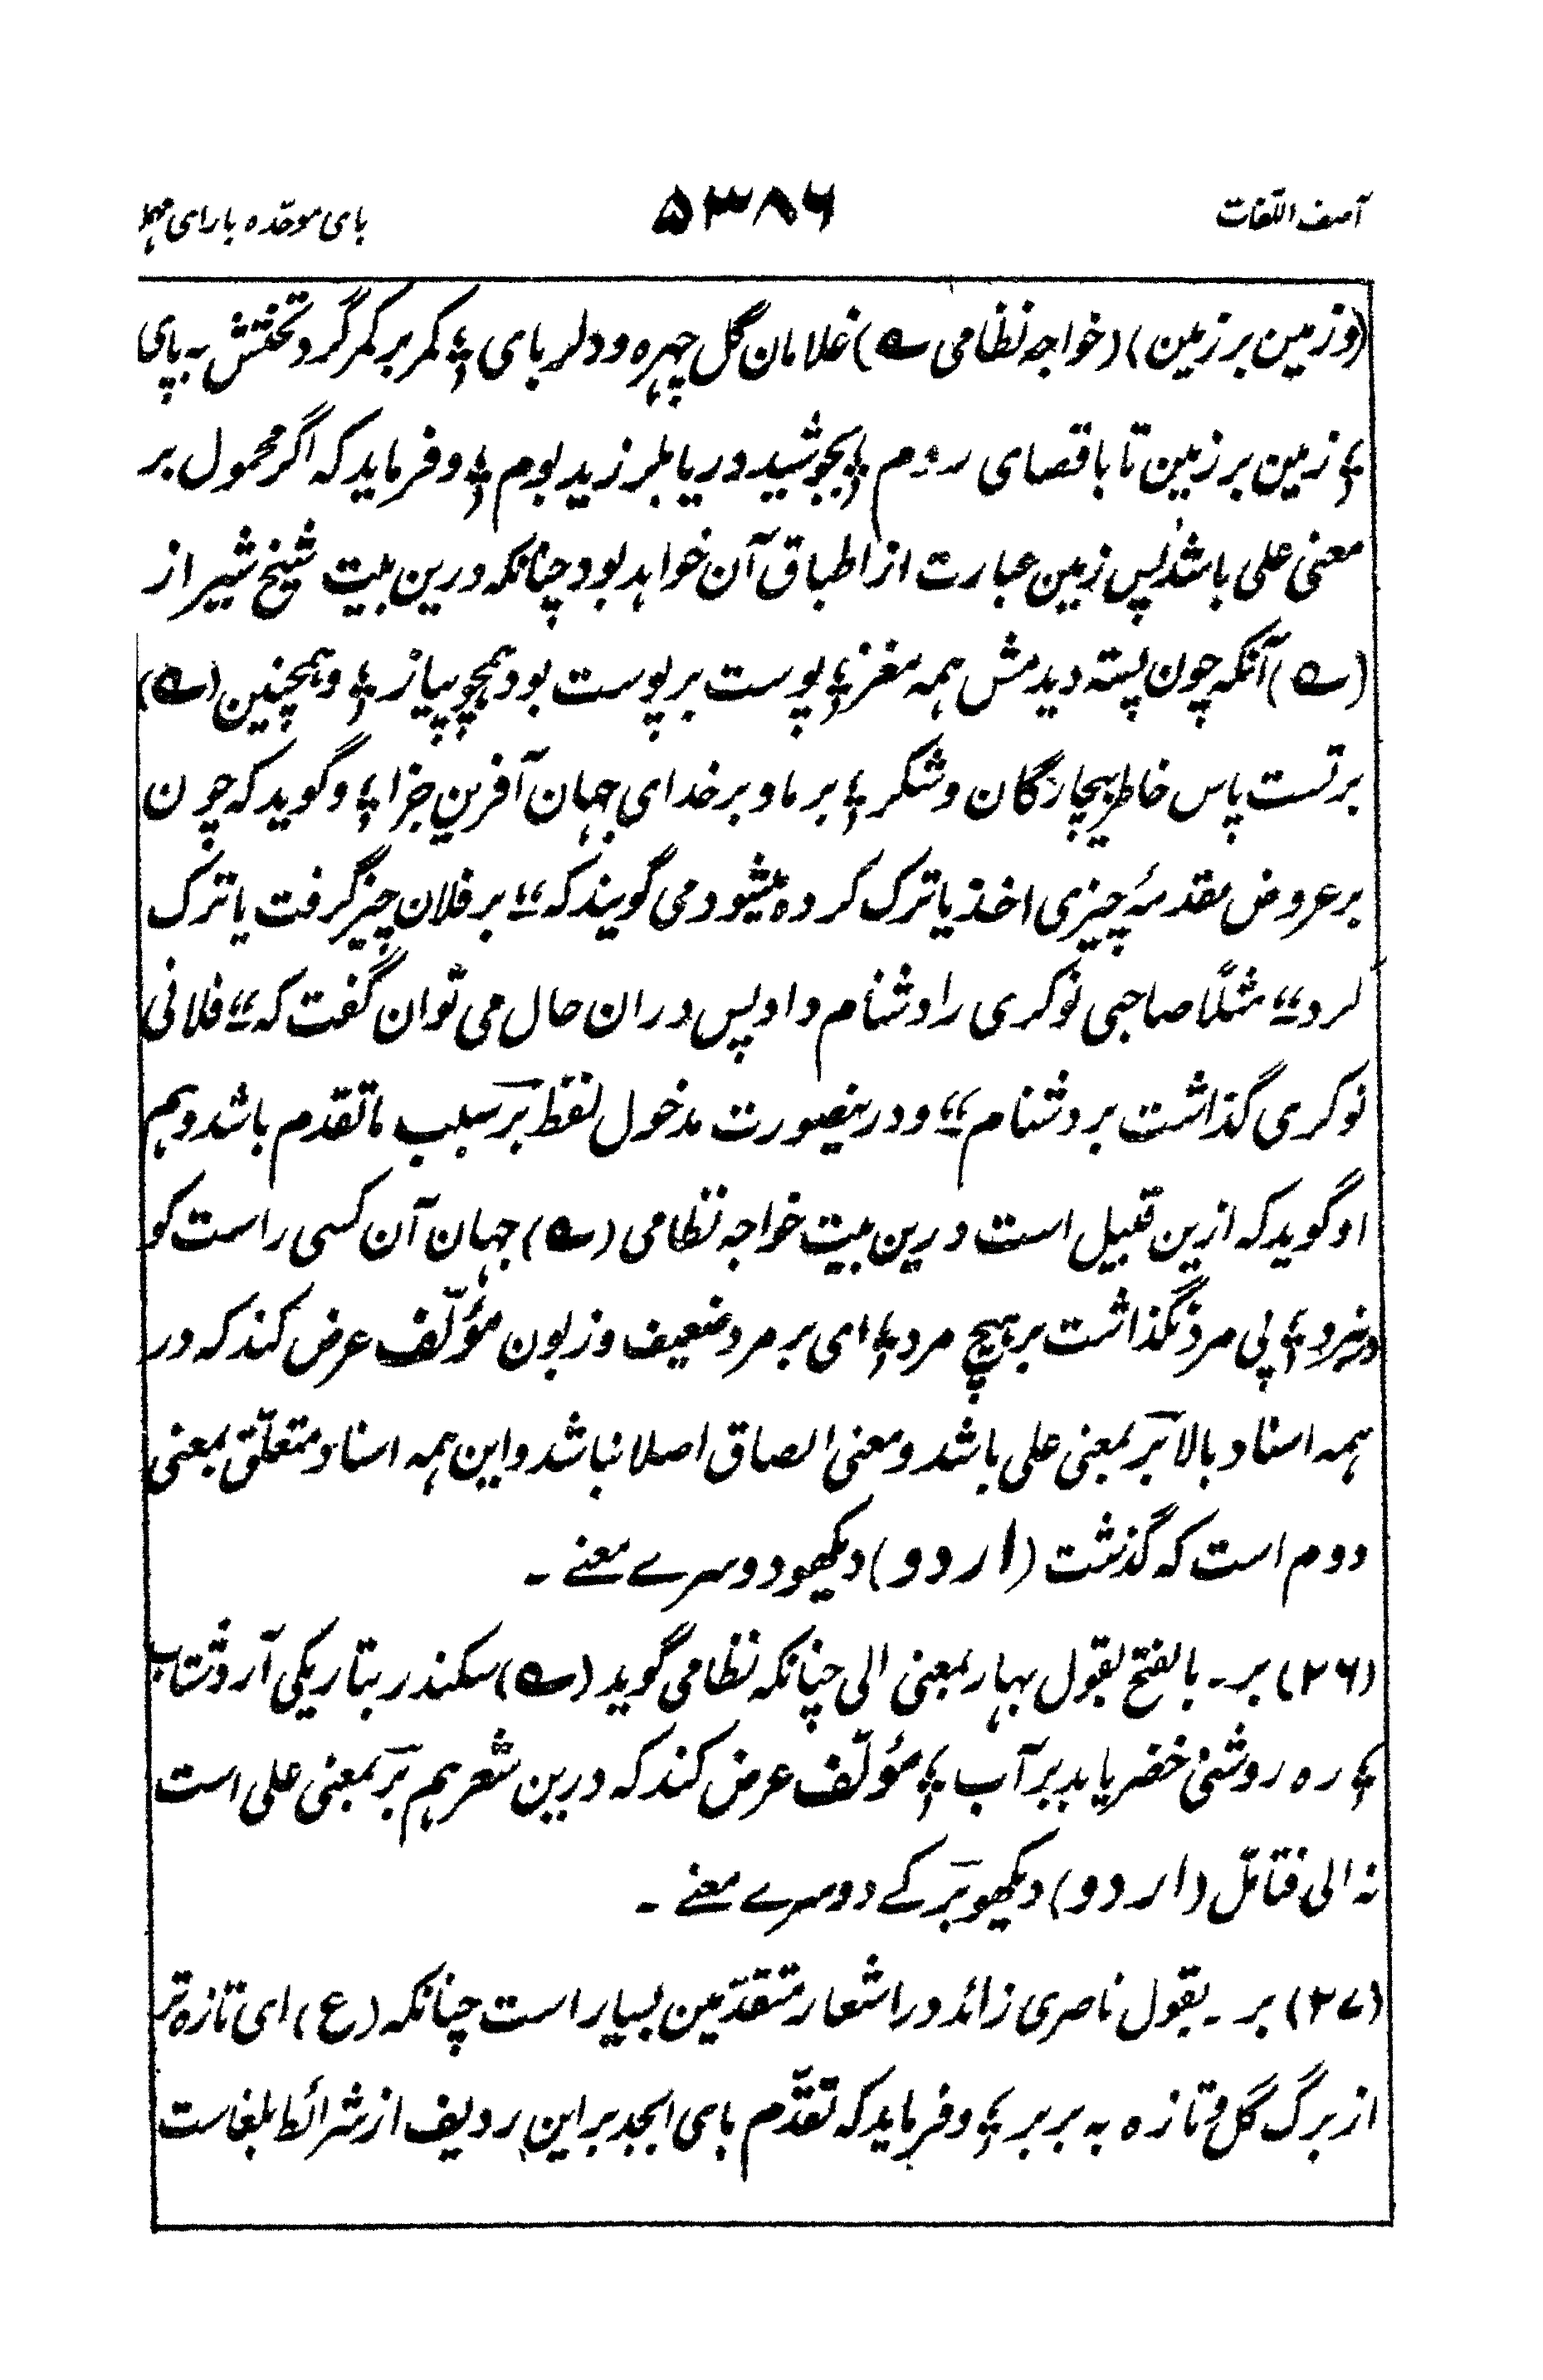 آصف اللّغات ۵۳۸۶ بای موحّدہ بارای مہملہ
(وزمین بر زمین) (خواجہ نظامی ؎) غلامان گل چہرہ و دلربای ؛ کمر بر کمر گرد تختش بہ پای
؛ زمین بر زمین تا باقصای روم ؛ بجوشید دریا بلرزید بوم ؛ و فرماید کہ اگر محمول بر
معنی علی باشد پس زمین عبارت از اطباق آن خواہد بود چنانکہ درین بیت شیخ شیراز
(؎) آنکہ چون پستہ دیدمش ہمہ مغز ؛ پوست بر پوست بود ہمچو پیاز ؛ و ہمچنین (؎)
بر تست پاس خاطر بیچارگان و شکر ؛ بر ما و بر خدای جہان آفرین جزا ؛ و گوید کہ چون
بر عروض مقدمۂ چیزی اخذ یا ترک کردہ میشود می گویند کہ “بر فلان چیز گرفت یا ترک
کرد“ مثلًا صاحبی نوکری را دشنام داد پس دران حال می توان گفت کہ “فلانی
نوکری گذاشت بر دشنام“ و درینصورت مدخول لفظ بر سبب ماتقدم باشد و ہم
او گوید کہ ازین قبیل است درین بیت خواجہ نظامی (؎) جہان آن کسی راست کو
در نبرد ؛ پی مرد نگذاشت بر ہیچ مرد ؛ ای بر مرد ضعیف و زبون مؤلّف عرض کند کہ در
ہمہ اسناد بالا بر بمعنی علی باشد و معنی الصاق اصلا نباشد و این ہمہ اسناد متعلّق بمعنی
دوم است کہ گذشت (اردو) دیکھو دوسرے معنے ۔
(۲۶) بر ۔ بالفتح بقول بہار بمعنی الی چنانکہ نظامی گوید (؎) سکندر بتاریکی آرد شتاب
؛ رہ روشنی خضر یابد بر آب ؛ مؤلّف عرض کند کہ درین شعر ہم بر بمعنی علی است
نہ الی فتامّل (اردو) دیکھو بر کے دوسرے معنے ۔
(۲۷) بر ۔ بقول ناصری زائد در اشعار متقدّمین بسیار است چنانکہ (ع) ای تازہ تر
از برگ گل و تازہ بہ بر بر ؛ و فرماید کہ تقدّم بای ابجد بر این ردیف از شرائط بلغاست